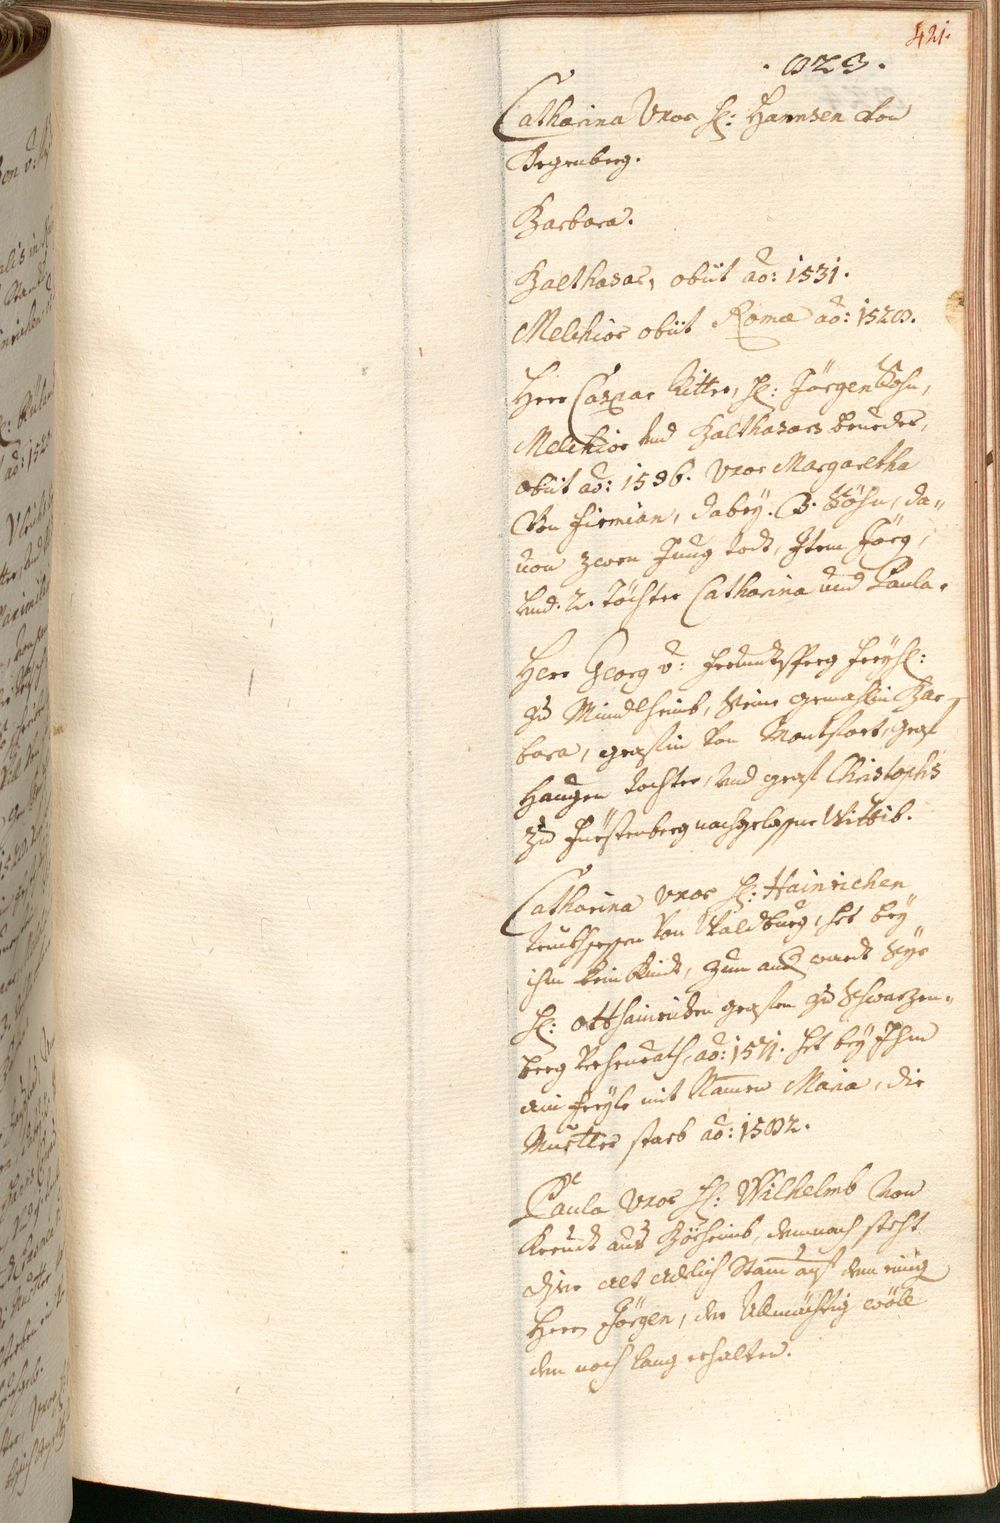 421.
. 823 .
Catharina Uxor H: Hannsen von
Degenberg.
Barbara.
Balthasar, obiit aō: 1531.
Melchior obiit Romæ aō: 1528.
Herr Caspar Ritter, H: Jörgen Sohn,
Melchior und Balthasars bruder,
obiit aō: 1536. Uxor Margaretha
Von Firmian, dabey. 3. Söhn, da„
uon zwen Jung todt, Item Jörg,
und. 2. töchter Catharina und Paula.
Herr Georg v: freundtsperg freyh:
zu Mündlheimb, Seine gemahlin Bar„
bara, gräffin von Montfort, graf
Haugen tochter, und graf Christophs
zu fürstenberg nachgelassne Wittib.
Catharina uxor H: Hainrichen
truchsessen von Waldburg, het bey
ihm kein kindt, zum and wardt Sye
H: Otthainrichen grafen zu Schwarzen„
berg verheurath, aō: 1571. het bey Ihm
ain freyle mit Namen Maria, die
Muetter starb aō: 1582.
Paula uxor H: Wilhelmb von
Kreudt auf, demnach steht
diser alt adelich Stam auf dem einig
Herrn Jörgen, der Allmächtig wöll
den noch lang erhalten.